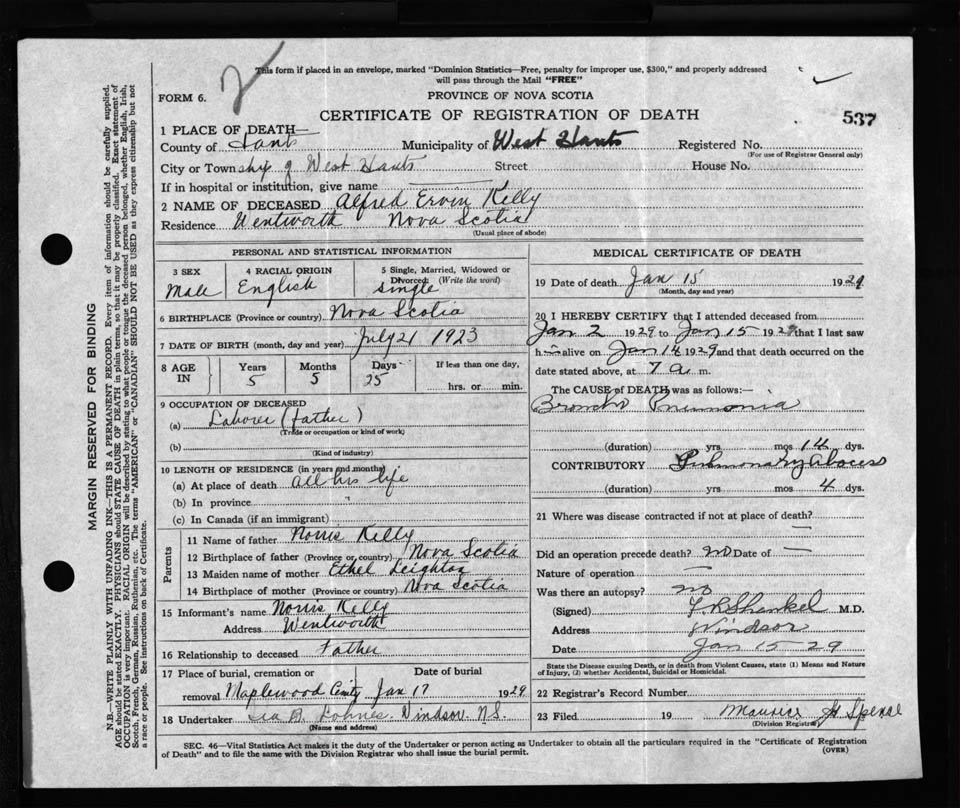 2
This form if placed in an envelope, marked "Dominion Statistics—Free, penalty for improper use, $300," and properly addressed
will pass through the Mail "FREE"
FORM 6.
PROVINCE OF NOVA SCOTIA
CERTIFICATE OF REGISTRATION OF DEATH
537
1 PLACE OF DEATH—
County of Hants Municipality of West Hants Registered No.
(For use of Registrar General only)
City or Township of West Hants Street House No.
If in hospital or institution, give name
2 NAME OF DECEASED Alfred Ervin Kelly
Residence Wentworth Nova Scotia
(Usual place of abode)
MARGIN RESERVED FOR BINDING
N.B.—WRITE PLAINLY WITH UNFADING INK—THIS IS A PERMANENT RECORD. Every item of information should be carefully supplied.
AGE should be stated EXACTLY. PHYSICIANS should STATE CAUSE OF DEATH in plain terms, so that it may be properly classified. Exact statement of
OCCUPATION is very important. RACIAL ORIGIN will be described by stating to what people or tongue the deceased person belonged, whether English, Irish,
Scotch, French, German, Russian, Ruthenian, etc. The terms "AMERICAN" or "CANADIAN" SHOULD NOT BE USED as they express citizenship but not
a race or people. See instructions on back of Certificate.
PERSONAL AND STATISTICAL INFORMATION
3 SEX
Male
4 RACIAL ORIGIN
English
5 Single, Married, Widowed or
Divorced (Write the word)
single
6 BIRTHPLACE (Province or country) Nova Scotia
7 DATE OF BIRTH (month, day and year) July 21 1923
8 AGE IN
Years Months Days If less than one day,
5 5 25 hrs. or min.
9 OCCUPATION OF DECEASED
(a) Laborer (father)
(Trade or occupation or kind of work)
(b)
(Kind of industry)
10 LENGTH OF RESIDENCE (in years and months)
(a) At place of death all his life
(b) In province "
(c) In Canada (if an immigrant)
Parents
11 Name of father Norris Kelly
12 Birthplace of father (Province or country) Nova Scotia
13 Maiden name of mother Ethel Leighton
14 Birthplace of mother (Province or country) Nova Scotia
15 Informant's name Norris Kelly
Address Wentworth
16 Relationship to deceased Father
17 Place of burial, cremation or Date of burial
removal Maplewood Jan 17 1929
18 Undertaker Windsor. N.S.
(Name and address)
MEDICAL CERTIFICATE OF DEATH
19 Date of death Jan 15 1929
(Month, day and year)
20 I HEREBY CERTIFY that I attended deceased from
Jan 2 1929 to Jan 15 1929 that I last saw
h alive on Jan 14 1929 and that death occurred on the
date stated above, at 7 a. m.
The CAUSE of DEATH was as follows:
Broncho Pneumonia
(duration) yrs mos 14 dys.
CONTRIBUTORY Pulmonary Abcess
(duration) yrs. mos 4 dys.
21 Where was disease contracted if not at place of death? —
Did an operation precede death? no Date of —
Nature of operation —
Was there an autopsy? no
(Signed) F.R. Shankel M.D.
Address Windsor
Date Jan 15 29
State the Disease causing Death, or in death from Violent Causes, state (1) Means and Nature
of Injury, (2) whether Accidental, Suicidal or Homicidal.
22 Registrar's Record Number
23 Filed 19 Maurice H Spense
(Division Registrar)
SEC. 46—Vital Statistics Act makes it the duty of the Undertaker or person acting as Undertaker to obtain all the particulars required in the "Certificate of Registration
of Death" and to file the same with the Division Registrar who shall issue the burial permit.
(OVER)